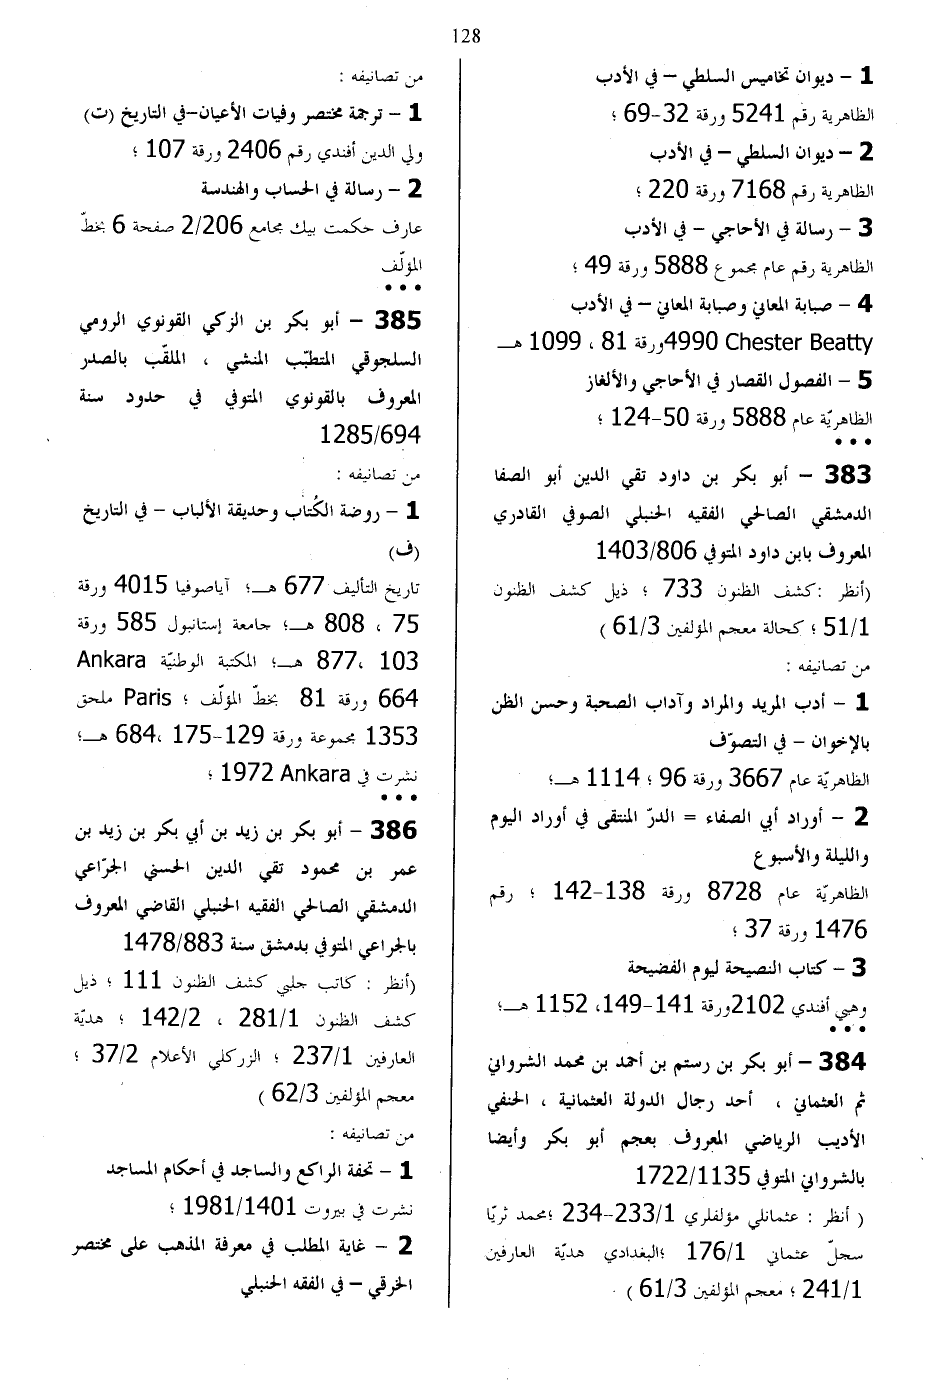 128
1 – ديوان تخاميس السلطي – في الأدب
الظاهرية رقم 5241 ورقة 32-69 ؛
2 – ديوان السلطي – في الأدب
الظاهرية رقم 7168 ورقة 220 ؛
3 – رسالة في الأحاجي – في الأدب
الظاهرية رقم عام مجموع 5888 ورقة 49 ؛
4 – صبابة المعاني وصبابة المعاني – في الأدب
Chester Beatty 4990ورقة 81 ، 1099 هـ
5 – الفصول القصار في الأحاجي والألغاز
الظاهريّة عام 5888 ورقة 50-124 ؛
•••
383 – أبو بكر بن داود تقي الدين أبو الصفا
الدمشقي الصالحي الفقيه الحنبلي الصوفي القادري
المعروف بابن داود المتوفي 1403/806
(أنظر :كشف الظنون 733 ؛ ذيل كشف الظنون
51/1 ؛ كحالة معجم المؤلفين 61/3 )
من تصانيفه :
1 – أدب المريد والمراد وآداب الصحبة وحسن الظن
بالإخوان – في التصوّف
الظاهريّة عام 3667 ورقة 96 ؛ 1114 هـ؛
2 – أوراد أبي الصفاء = الدرّ المنتقى في أوراد اليوم
والليلة والأسبوع
الظاهريّة عام 8728 ورقة 138-142 ؛ رقم
1476 ورقة 37 ؛
3 – كتاب النصيحة ليوم الفضيحة
وهبي أفندي 2102ورقة 141-149، 1152 هـ؛
•••
384 – أبو بكر بن رستم بن أحمد بن محمد الشرواني
ثم العثماني ، أحد رجال الدولة العثمانية ، الحنفي
الأديب الرياضي المعروف بعجم أبو بكر وأيضا
بالشرواني المتوفي 1722/1135
( أنظر : عثمانلي مؤلفلري 233/1-234 ؛محمد ثريّا
سجلّ عثماني 176/1 ؛البغدادي هديّة العارفين
241/1 ؛ معجم المؤلفين 61/3 )
من تصانيفه :
1 – ترجمة مختصر وفيات الأعيان–في التاريخ (ت)
ولي الدين أفندي رقم 2406 ورقة 107 ؛
2 – رسالة في الحساب والهندسة
عارف حكمت بيك مجاميع 2/206 صفحة 6 بخطّ
المؤلّف
•••
385 – أبو بكر بن الزكي القونوي الرومي
السلجوقي المتطبّب المنشي ، الملقّب بالصدر
المعروف بالقونوي المتوفي في حدود سنة
1285/694
من تصانيفه :
1 – روضة الكُتاب وحديقة الألباب – في التاريخ
(ف)
تاريخ التأليف 677 هـ؛ آياصوفيا 4015 ورقة
75 ، 808 هـ؛ جامعة إستانبول 585 ورقة
103 ،877 هـ؛ المكتبة الوطنيّة Ankara
664 ورقة 81 بخطّ المؤلّف ؛ Paris ملحق
1353 مجموعة ورقة 129-175 ،684 هـ؛
نشرت في Ankara 1972 ؛
•••
386 – أبو بكر بن زيد بن أبي بكر بن زيد بن
عمر بن محمود تقي الدين الحسني الجرّاعي
الدمشقي الصالحي الفقيه الحنبلي القاضي المعروف
بالجراعي المتوفي بدمشق سنة 1478/883
(أنظر : كاتب جلبي كشف الظنون 111 ؛ ذيل
كشف الظنون 281/1 ، 142/2 ؛ هديّة
العارفين 237/1 ؛ الزركلي الأعلام 37/2 ؛
معجم المؤلفين 62/3 )
من تصانيفه :
1 – تحفة الراكع والساجد في أحكام المساجد
نشرت في بيروت 1981/1401 ؛
2 – غاية المطلب في معرفة المذهب على مختصر
الخرقي – في الفقه الحنبلي